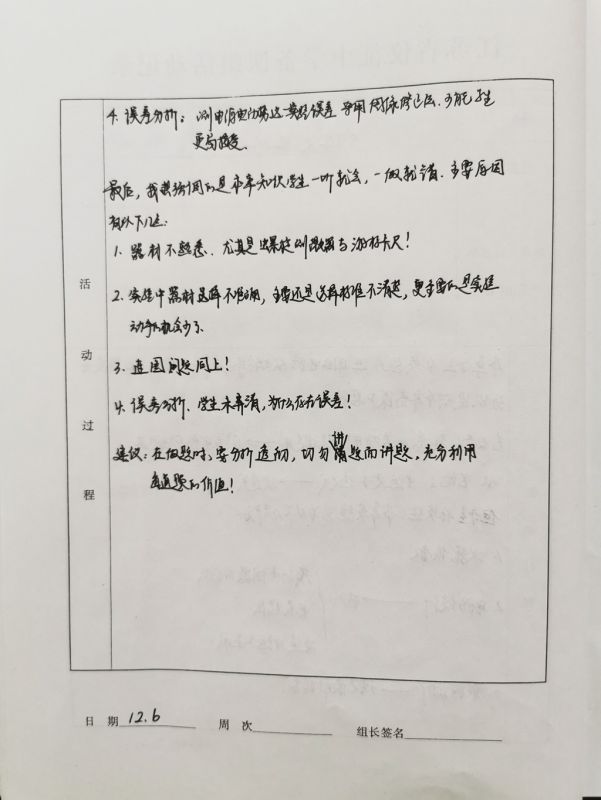 4. 误差分析： 测电源电动势这类的误差 导用图像修正法. 才能学生
更易接受.
最后, 我要强调的是本章知识学生一听就会, 一做就错. 主要原因
有以下几点.
1. 器材不熟悉. 尤其是螺旋测微器与游标卡尺！
2. 实验中器材选择不准确, 主要还是选择标准不清楚, 更主要的是实验
动手的机会少了.
3. 连图问题同上！
4. 误差分析. 学生未弄清, 为什么存在误差！
建议：在做题时, 要分析透彻, 切勿讲题而讲题, 充分利用
每道题的价值！
活
动
过
程
日 期 12.6 周 次 组长签名